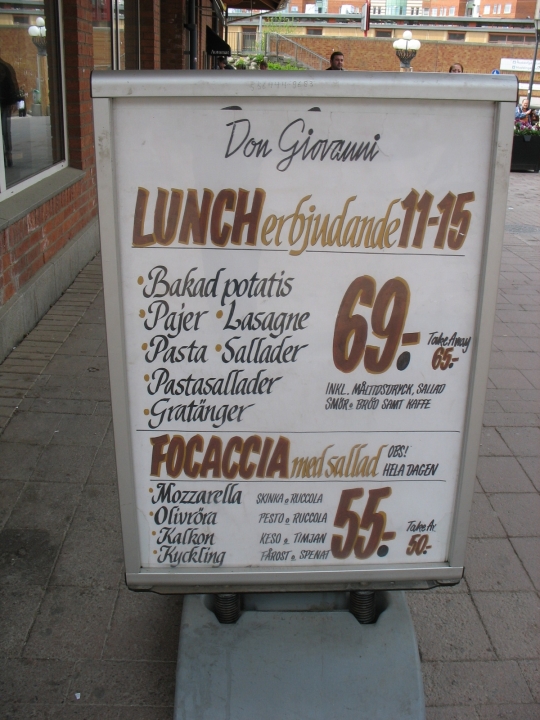 Don Giovanni
LUNCH erbjudande 11-15
• Bakad potatis
• Pajer • Lasagne
• Pasta • Sallader
• Pastasallader
• Gratänger
69:-
Take Away
65:-
INKL. MÅLTIDSDRYCK, SALLAD
SMÖR o BRÖD SAMT KAFFE
FOCACCIA med sallad OBS!
HELA DAGEN
• Mozzarella SKINKA o RUCCOLA
• Olivröra PESTO o RUCCOLA
• Kalkon KESO o TIMJAN
• Kyckling FÄROST o SPENAT
55:-
Take A
50:-